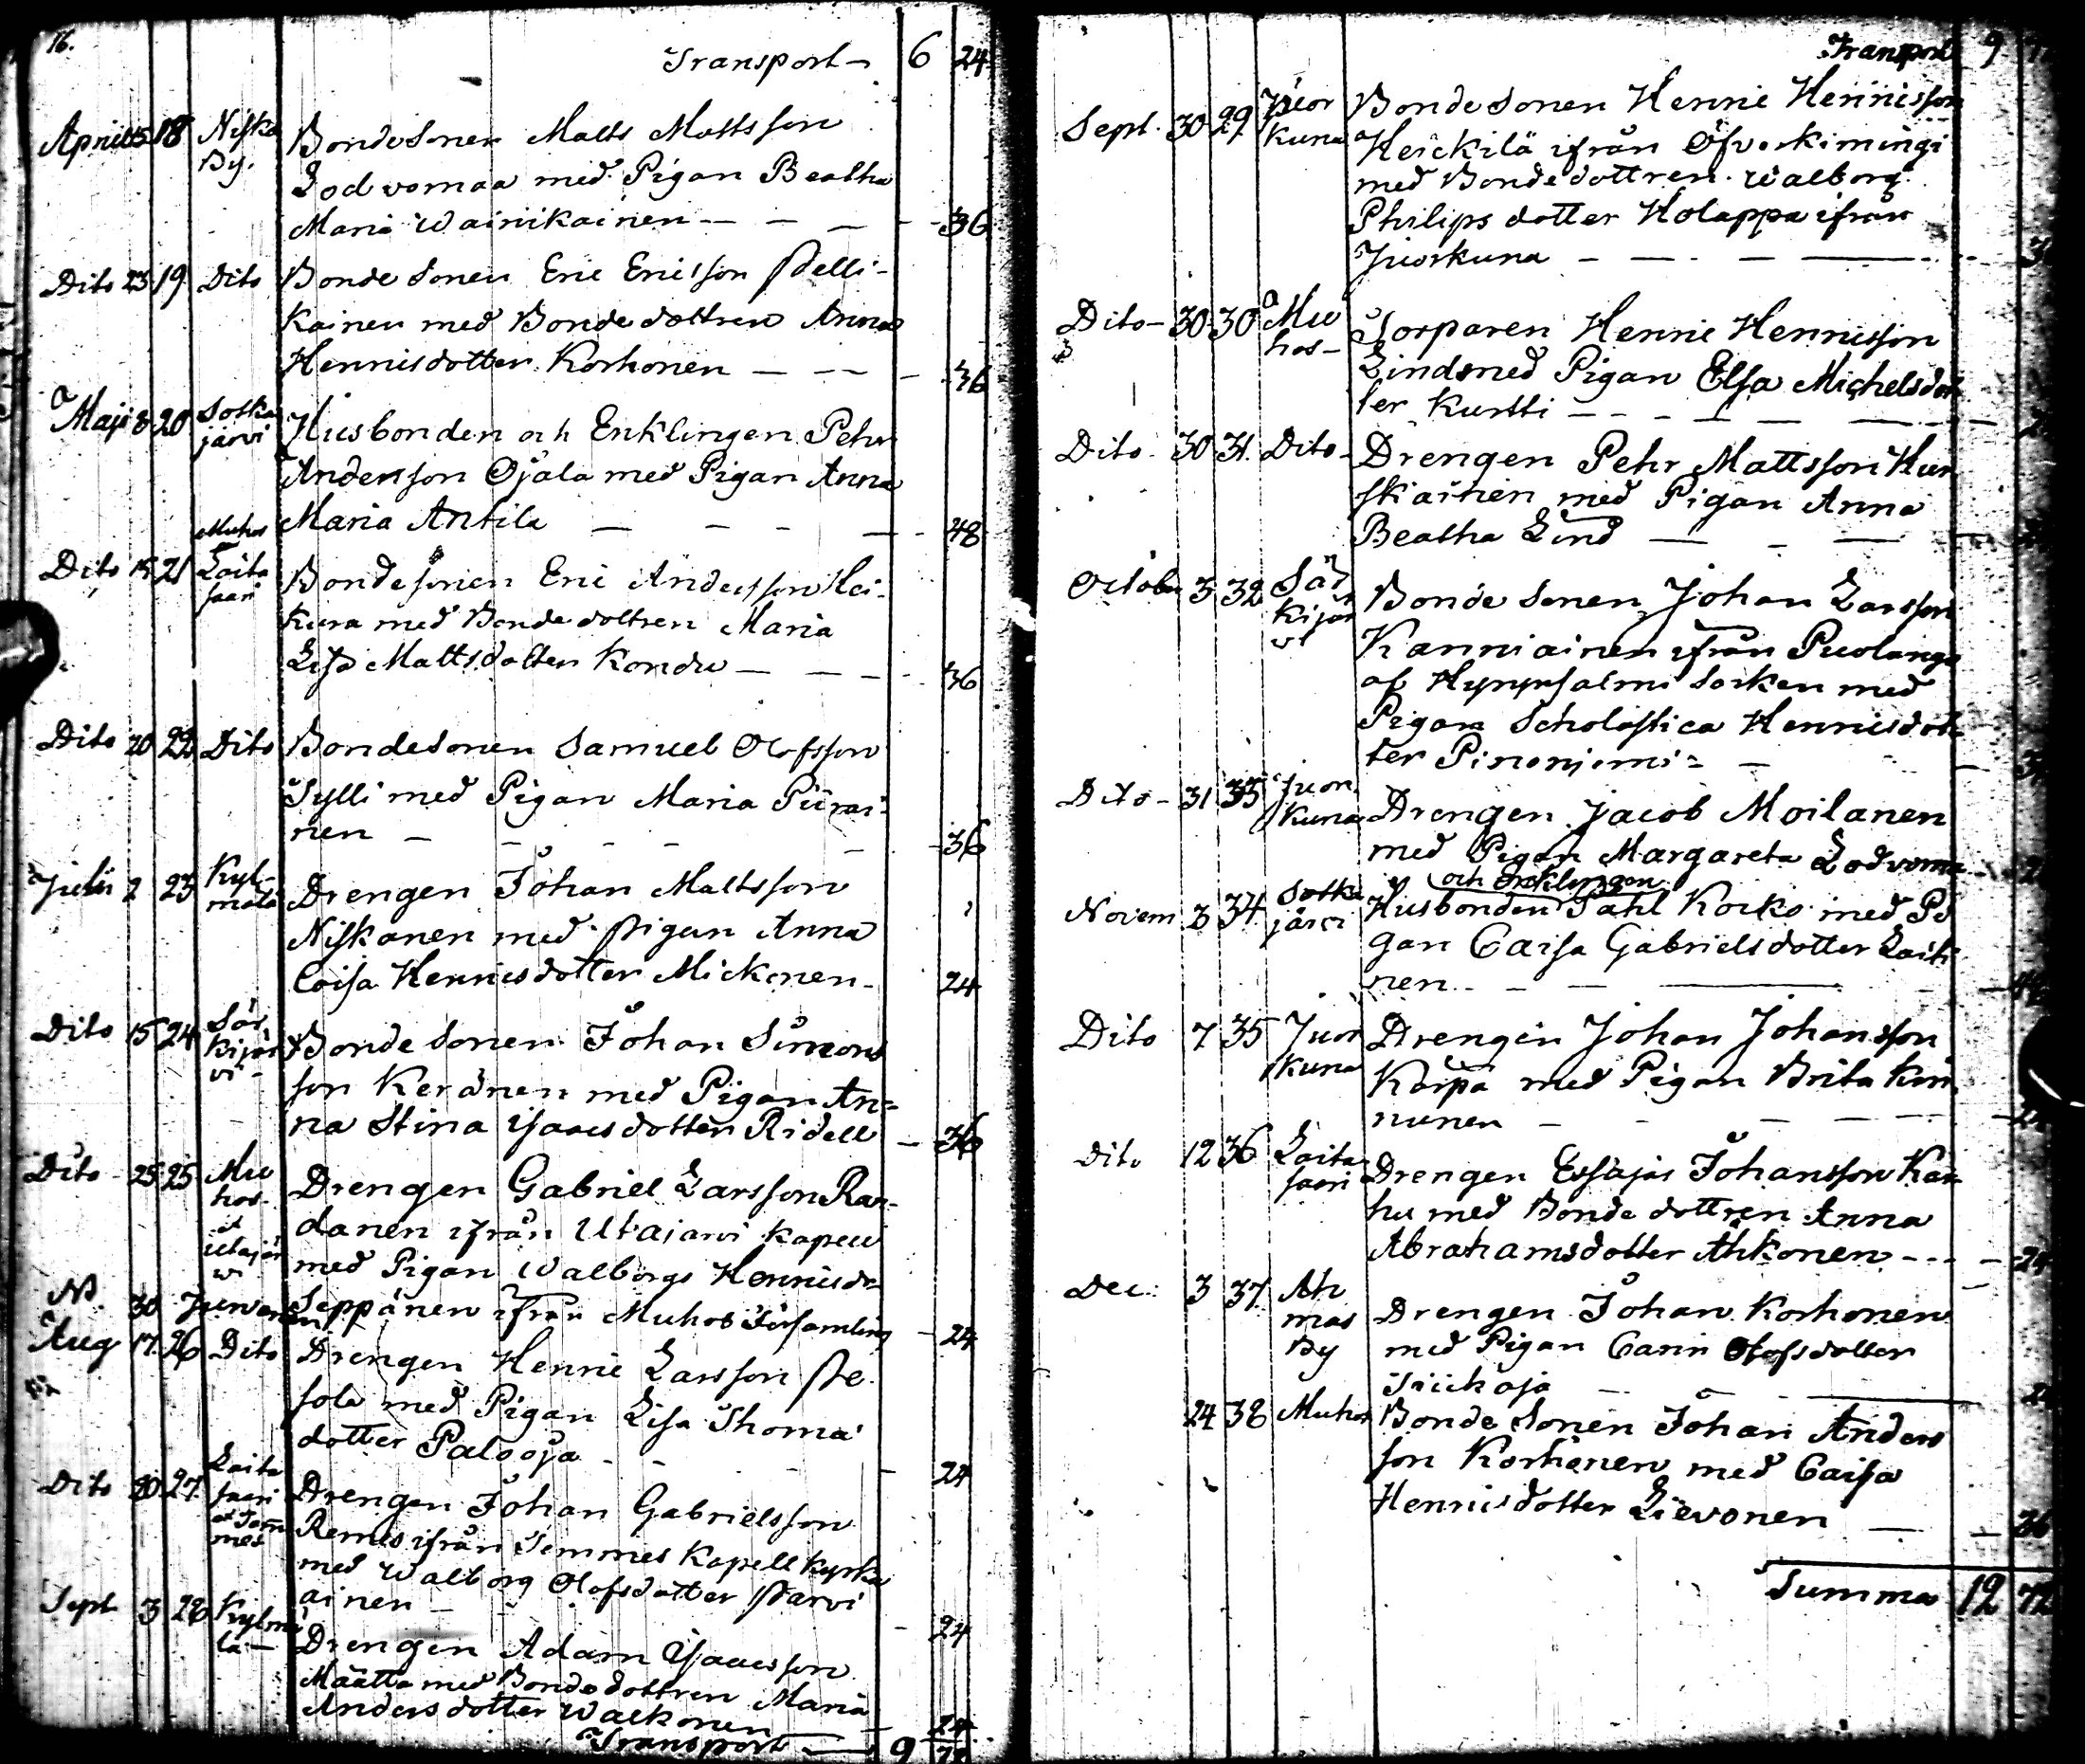 16.
Transport 6 24
April 15 18 Niska By. Bondesonen Matts Mattsson
Lodvomaa med Pigan Beatha
Maria Wainikainen — — — 36
Dito 23 19 Dito Bonde Sonen Eric Ericsson Pelli-
kainen med Bonde dottren Anna
Henricsdotter Korhonen — — — 36
Maji 8 20 Sotka järvi Husbonden och Enklingen Pehr
Andersson Ojala med Pigan Anna
Maria Antila — — — 48
Dito 15 21 Muhos Laita saari Bondesonen Eric Andersson Hei-
kura med Bonde dottren Maria
Lisa Mattsdotter Kondu — — — 36
Dito 20 22 Dito Bondesonen Samuel Olofsson
Tylli med Pigan Maria Piirai-
nen — — — 36
Julii 2 23 Kyl- mälä Drengen Johan Mattsson
Niskanen med Pigan Anna
Caisa Henricsdotter Mickonen — 24
Dito 15 24 Sär kijär vi Bonde Sonen Johan Simons
son Keränen med Pigan An=
na Stina Isaacsdotter Ridell — 36
Dito 25 25 Mu hos et Utajär wi Drengen Gabriel Larsson Rau-
danen ifrån Utajärvi Kapell
med Pigan Walborg Henricsdr
30 Seppänen ifrån Muhos Församling — 24
Aug 17 26 Dito Drengen Henric Larsson Pe-
sola med Pigan Lisa Thoma
dotter Palooja — — — 24
Dito 20 27 Laita saari et Tem mes Drengen Johan Gabrielsson
Remes ifrån Temmes Kapell kyrka
med Walborg Olofsdotter Parvi
ainen — 24
Sept 3 28 Kylmä lä — Drengen Adam Isacsson
Määtta med Bonde dottren Maria
Andersdotter Walkonen — 24
Transport — 9 72
Transport 9 72
Sept. 30 29 Juor kuna Bonde Sonen Henric Henricsson
Heickilä ifrån Öfverkimingi
med Bonde dottren Walborg
Philips dotter Holappa ifrån
Juorkuna — — — 36
Dito 30 30 Mu hos — Torparen Henric Henricsson
Lind med Pigan Elsa Michelsdot
ter Kurtti — — —
Dito 30 31. Dito — Drengen Pehr Mattsson Hur
skainen med Pigan Anna
Beatha Lind — — —
Octobr 3 32 Sär kijär vi Bonde Sonen Johan Larsson
Kanniainen ifrån Puolango
af Hyrynsalmi Socken med
Pigan Scholastica Henricsdot
ter Pinoniemi = — 36
Dito — 31 33 Juor kuna Drengen Jacob Moilanen
med Pigan Margareta Lodvoma
och Enklingen
Novem 3 34 Sotka järvi Husbonden Påhl Korko med Pi
gan Caisa Gabrielsdotter Laiti
nen — — — 48
Dito 7 35 Juor kuna Drengen Johan Johansson
Kärpä med Pigan Brita Kin
nunen — — — 24
Dito 12 36 Laita saari Drengen Essajas Johansson Kar
hu med Bonde dottren Anna
Abrahamsdotter Ahkonen — — — 24
Dec: 3 37. Ah mas By Drengen Johan Korhonen
med Pigan Carin Olofsdotter
Tiickaja — — 24
24 38 Muhos Bonde Sonen Johan Anders
son Korhonen med Caisa
Henricsdotter Lievonen — — 36
Summa 12 72